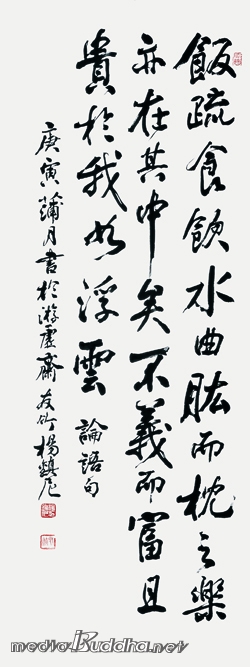 飯疏食飮水曲肱而枕之樂
亦在其中矣不義而富且
貴於我如浮雲 論語句
庚寅蒲月書於游虛齋 友竹 楊鎭
mediaBuddha.net